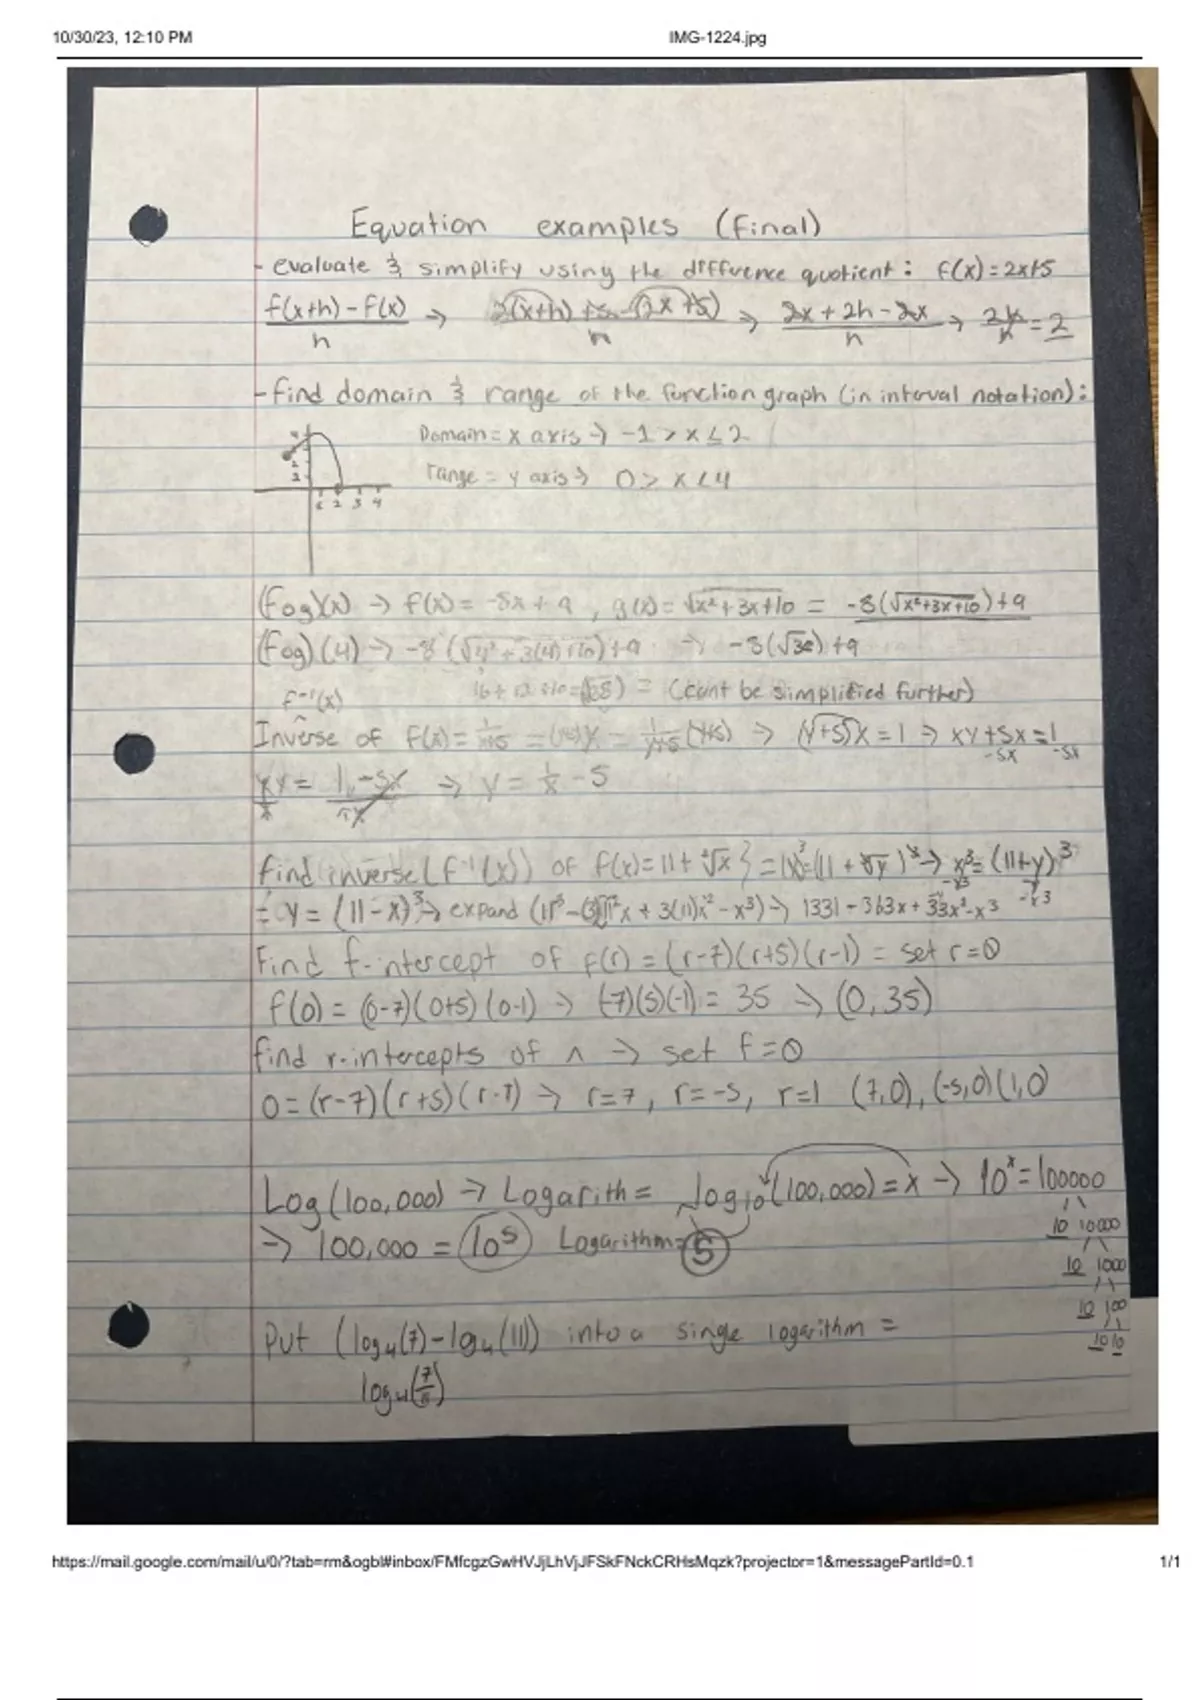 10/30/23, 12:10 PM IMG-1224.jpg
Equation examples (final)
- evaluate & simplify using the difference quotient: f(x)=2x+5
f(x+h)-f(x) / h → 2(x+h)+5-(2x+5) / h → 2x+2h-2x / h → 2h/h = 2
- find domain & range of the function graph (in interval notation):
Domain = x axis → -1 > x ≤ 2
range = y axis → 0 > x < 4
1 2 3 4
(fog)(x) → f(x) = -8x+9, g(x) = √x²+3x+10 = -8(√x²+3x+10)+9
(fog)(4) → -8(√4²+3(4)+10)+9 → -8(√38)+9
16+12+10=√38) = (cant be simplified further)
f⁻¹(x)
Inverse of f(x) = 1/x+5 = 1/y+5 (y+5) → (y+5)x = 1 → xy+5x=1
-5x -5x
xy/x = 1-5x/x → y = 1/x - 5
find inverse (f⁻¹(x)) of f(x) = 11+ ³√x → x³=(11+y)³
= y = (11-x)³ → expand (11³-(3)11²x + 3(11)x²-x³) → 1331-363x+33x²-x³
Find f-intercept of f(r) = (r-7)(r+5)(r-1) = set r=0
f(0) = (0-7)(0+5)(0-1) → (-7)(5)(-1) = 35 → (0,35)
find r-intercepts of ^ → set f=0
0=(r-7)(r+5)(r-1) → r=7, r=-5, r=1 (7,0), (-5,0)(1,0)
Log(100,000) → Logarith = log10(100,000)=x → 10ˣ=100000
10 10000
→ 100,000 = 10⁵ Logarithm = 5
10 1000
10 100
10 10
Put (log₄(7)-log₄(11)) into a single logarithm =
log₄(7/11)
https://mail.google.com/mail/u/0/?tab=rm&ogbl#inbox/FMfcgzGwHVJjLhVjJFSkFNckCRHsMqzk?projector=1&messagePartId=0.1 1/1